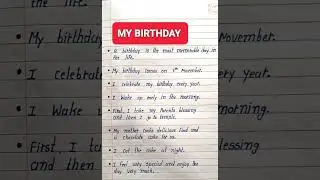 MY BIRTHDAY
A birthday is the most memorable day in
the life.
My birthday comes on November.
I celebrate my birthday every year.
I Wake up early in the morning.
First, I take my Parents blessing
and then I go to temple.
My mother cooks delicious food and
a chocolate cake for me.
I cut the cake at night.
I feel very special and enjoy the
day very much.
the
My birthday
November.
I celebra
ery year.
I Wake
First, I ta
lessing
and then